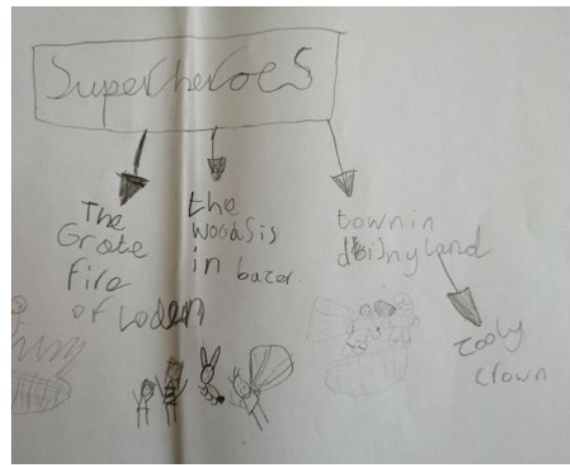 Superheroes
The
Grate
Fire
of Loden
the
woods is
in bazer.
town in
disny land
zooly
clown